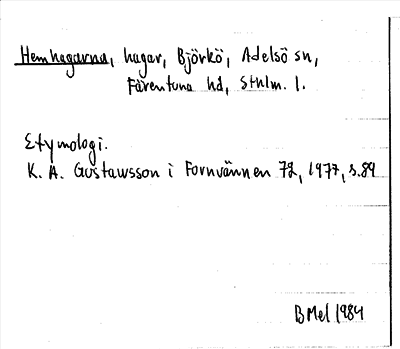 Hemhagarna, hagar, Björkö, Adelsö sn,
Färentuna hd, Sthlm. l.
Etymologi.
K. A. Gustawsson i Fornvännen 72, 1977, s. 89
BMel 1984